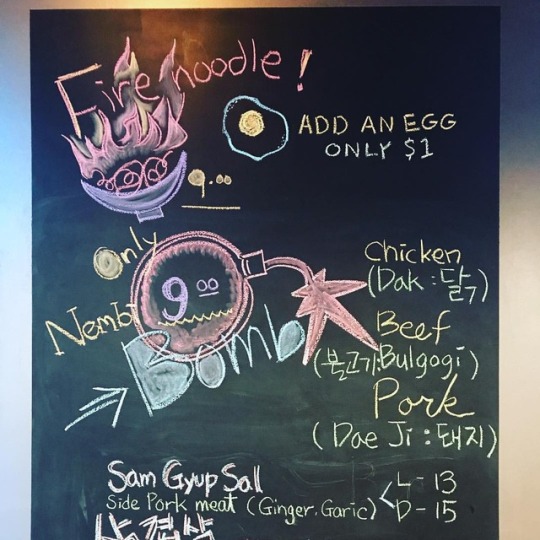 Fire noodle!
ADD AN EGG
ONLY $1
9.00
Only
9 00
Nembi
Bomb
Chicken
(Dak : 닭)
Beef
(불고기:Bulgogi)
Pork
(Dae Ji : 돼지)
Sam Gyup Sal
Side Pork meat (Ginger. Garic)
L - 13
D - 15
삼겹살